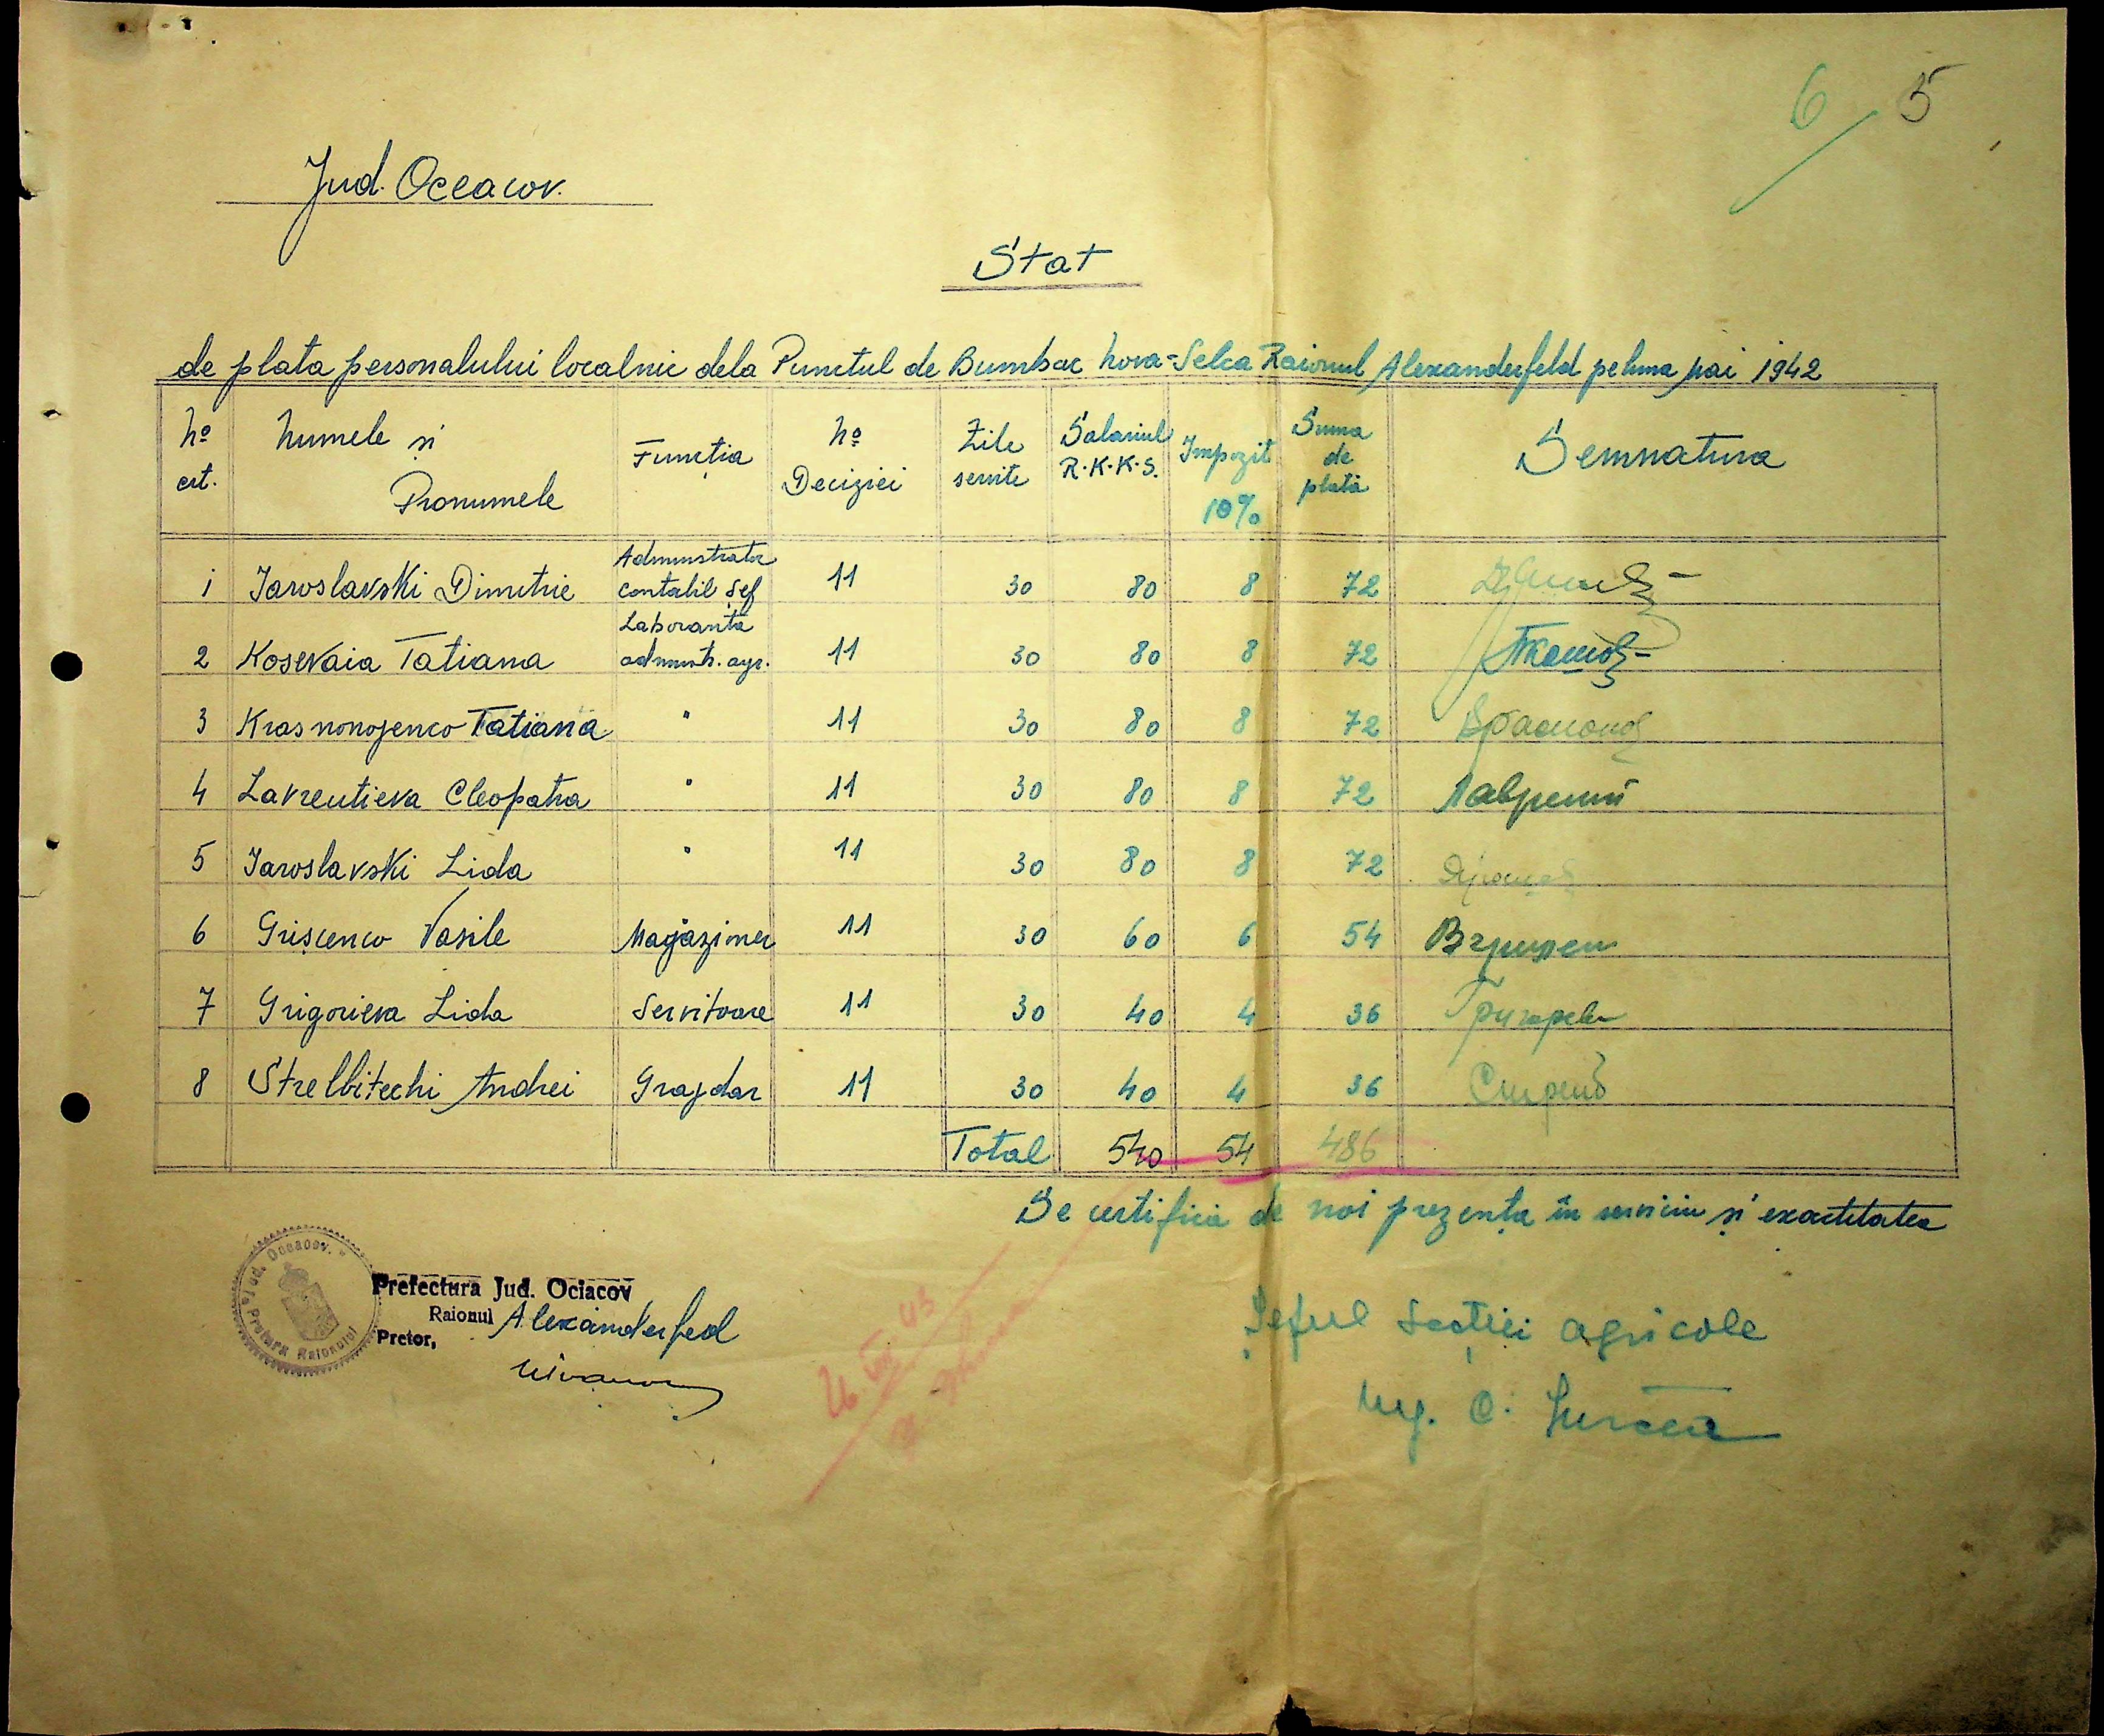 6 5
Jud. Oceacov.
Stat
de plata personalului localnic dela Punctul de Bumbac Nova-Selca Raionul Alexanderfeld pe luna Mai 1942
No crt. Numele si Pronumele Funcția No Deciziei Zile servite Salariul R.K.K.S. Impozit 10% Suma de plată Semnatura
1 Iaroslavski Dimitrie Administrator contabil Șef 11 30 80 8 72
2 Kosevaia Tatiana Laboranta administr. agr. 11 30 80 8 72
3 Krasnonojenco Tatiana " 11 30 80 8 72
4 Lavrentieva Cleopatra " 11 30 80 8 72 Лаврент
5 Iaroslavski Lida " 11 30 80 8 72
6 Grișcenco Vasile Magaziner 11 30 60 6 54
7 Grigorieva Lida Servitoare 11 30 40 4 36
8 Strelbitechi Andrei Grajdar 11 30 40 4 36
Total 540 54 486
Se certifica de noi prezența în serviciu și exactitatea
Jud. Oceacov. Pretura Raionului
Prefectura Jud. Ociacov
Raionul Alexanderfeld
Pretor,
Șeful Secției agricole
Ing. C.